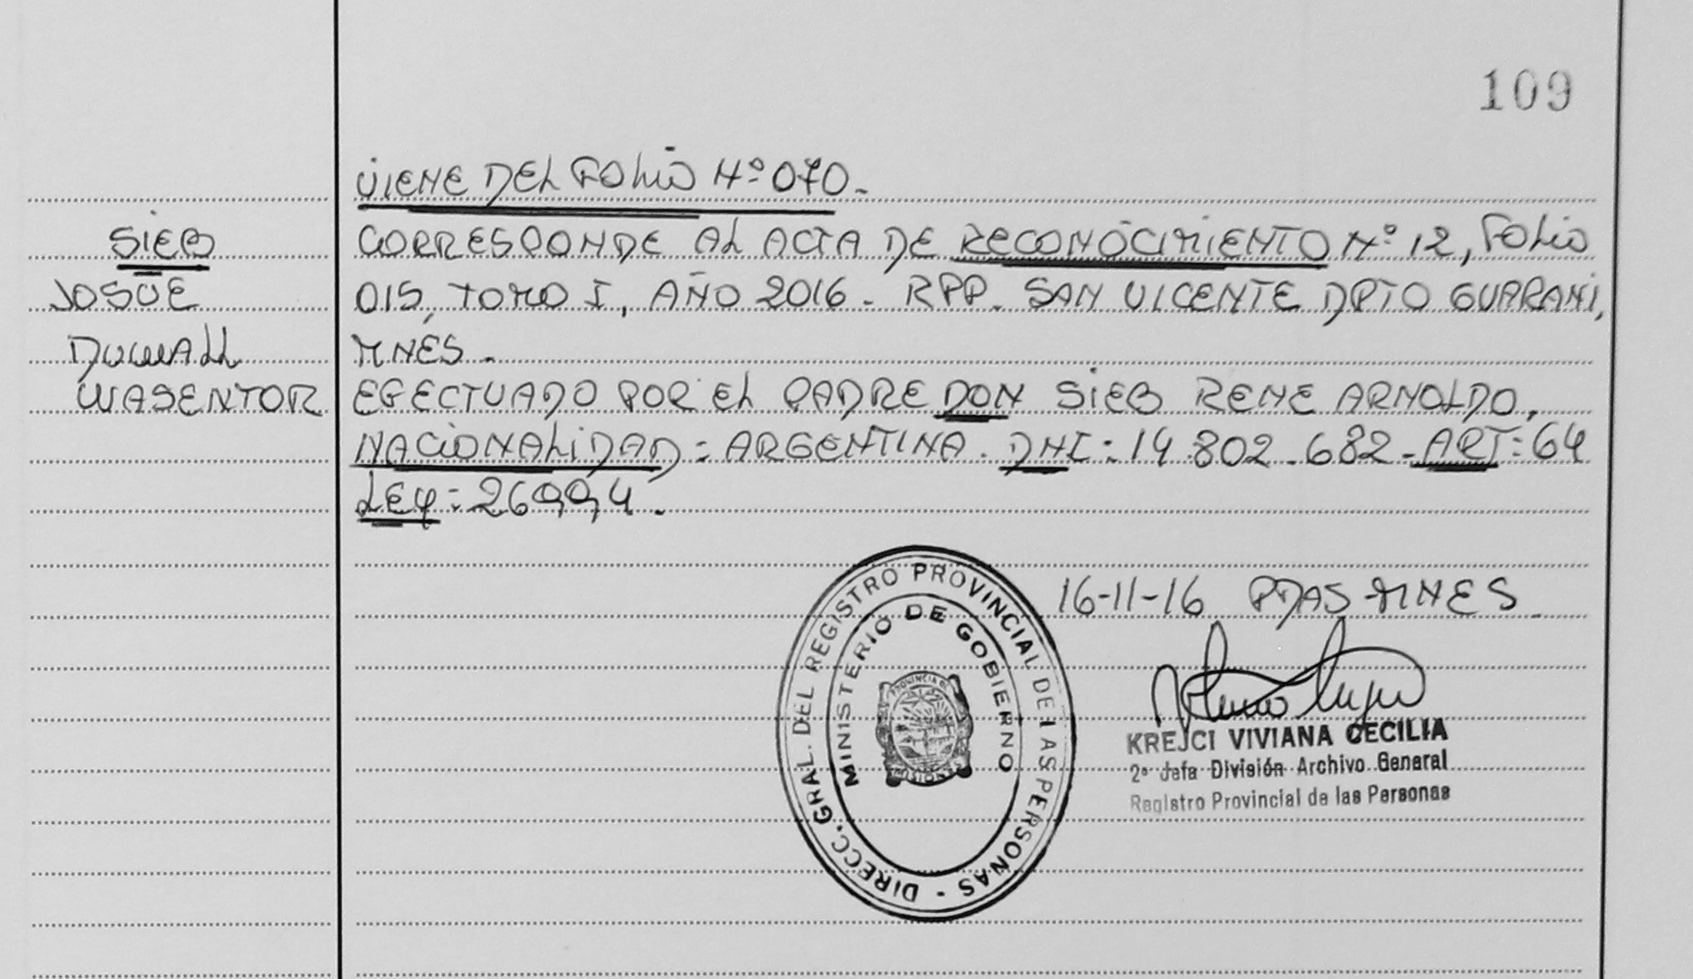 109
VIENE DEL FOLIO Nº 070.-
SIEB
CORRESPONDE AL ACTA DE RECONOCIMIENTO Nº 12, FOLIO
JOSUE
015, TOMO I, AÑO 2016 - RPP. SAN VICENTE DPTO GUARANI,
DUWALL
MNES.
WASENTOR
EFECTUADO POR EL PADRE DON SIEB RENE ARNOLDO,
NACIONALIDAD: ARGENTINA. DNI: 14.802.682 - ART: 64
LEY: 26994.
16-11-16 PDAS-MNES
DIRECC. GRAL. DEL REGISTRO PROVINCIAL DE LAS PERSONAS -
MINISTERIO DE GOBIERNO
PROVINCIA DE
MISIONES
KREJCI VIVIANA CECILIA
2ª Jefa División Archivo General
Registro Provincial de las Personas